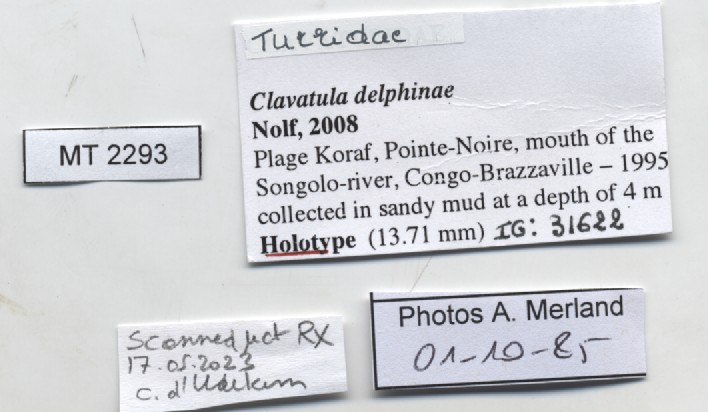 Turridae
Clavatula delphinae
Nolf, 2008
Plage Koraf, Pointe-Noire, mouth of the
Songolo-river, Congo-Brazzaville – 1995
collected in sandy mud at a depth of 4 m
Holotype (13.71 mm) IG: 31622
MT 2293
Scanned µct RX
17.05.2023
C. d'Udekem
Photos A. Merland
01-10-85